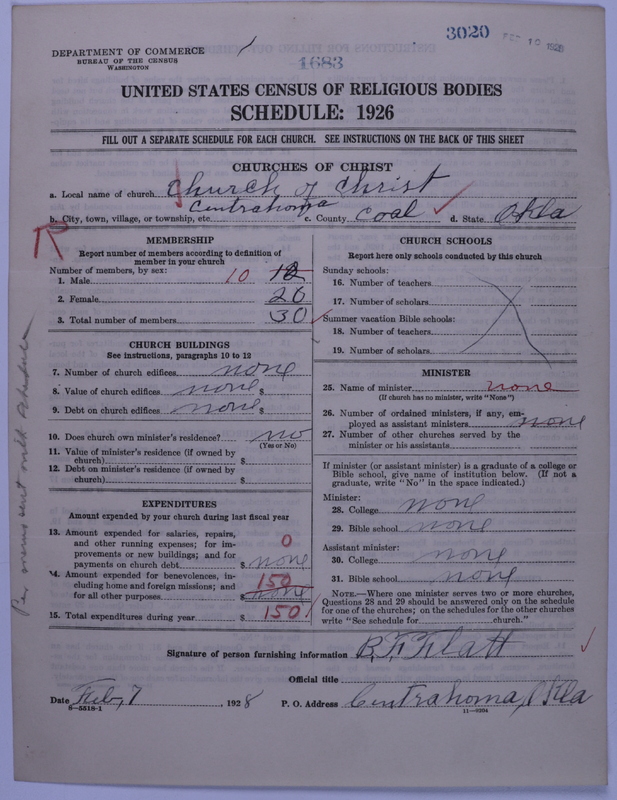 3020 FEB 10 1928
DEPARTMENT OF COMMERCE
BUREAU OF THE CENSUS
WASHINGTON
1683
UNITED STATES CENSUS OF RELIGIOUS BODIES
SCHEDULE: 1926
FILL OUT A SEPARATE SCHEDULE FOR EACH CHURCH. SEE INSTRUCTIONS ON THE BACK OF THIS SHEET
CHURCHES OF CHRIST
a. Local name of church Church of Christ
b. City, town, village, or township, etc. Centrahoma c. County Coal d. State Okla
R
MEMBERSHIP
Report number of members according to definition of
member in your church
Number of members, by sex:
1. Male 10 12
2. Female 20
3. Total number of members 30
CHURCH BUILDINGS
See instructions, paragraphs 10 to 12
7. Number of church edifices none
8. Value of church edifices none $
9. Debt on church edifices none $
10. Does church own minister's residence? no
(Yes or No)
11. Value of minister's residence (if owned by
church) $
12. Debt on minister's residence (if owned by
church) $
EXPENDITURES
Amount expended by your church during last fiscal year
13. Amount expended for salaries, repairs,
and other running expenses; for im-
provements or new buildings; and for
payments on church debt 0 $ none
14. Amount expended for benevolences, in-
cluding home and foreign missions; and
for all other purposes 150 $ none
15. Total expenditures during year $ 150
CHURCH SCHOOLS
Report here only schools conducted by this church
Sunday schools:
16. Number of teachers
17. Number of scholars
Summer vacation Bible schools:
18. Number of teachers
19. Number of scholars
MINISTER
25. Name of minister none
(If church has no minister, write "None")
26. Number of ordained ministers, if any, em-
ployed as assistant ministers none
27. Number of other churches served by the
minister or his assistants
If minister (or assistant minister) is a graduate of a college or
Bible school, give name of institution below. (If not a
graduate, write "No" in the space indicated.)
Minister:
28. College none
29. Bible school none
Assistant minister:
30. College none
31. Bible school none
NOTE.—Where one minister serves two or more churches,
Questions 28 and 29 should be answered only on the schedule
for one of the churches; on the schedules for the other churches
write "See schedule for church."
Signature of person furnishing information B. F. Flatt
Official title
Date Feb, 7 1928 P. O. Address Centrahoma, Okla
8—5518-1 11—9204
Per memo sent with schedule